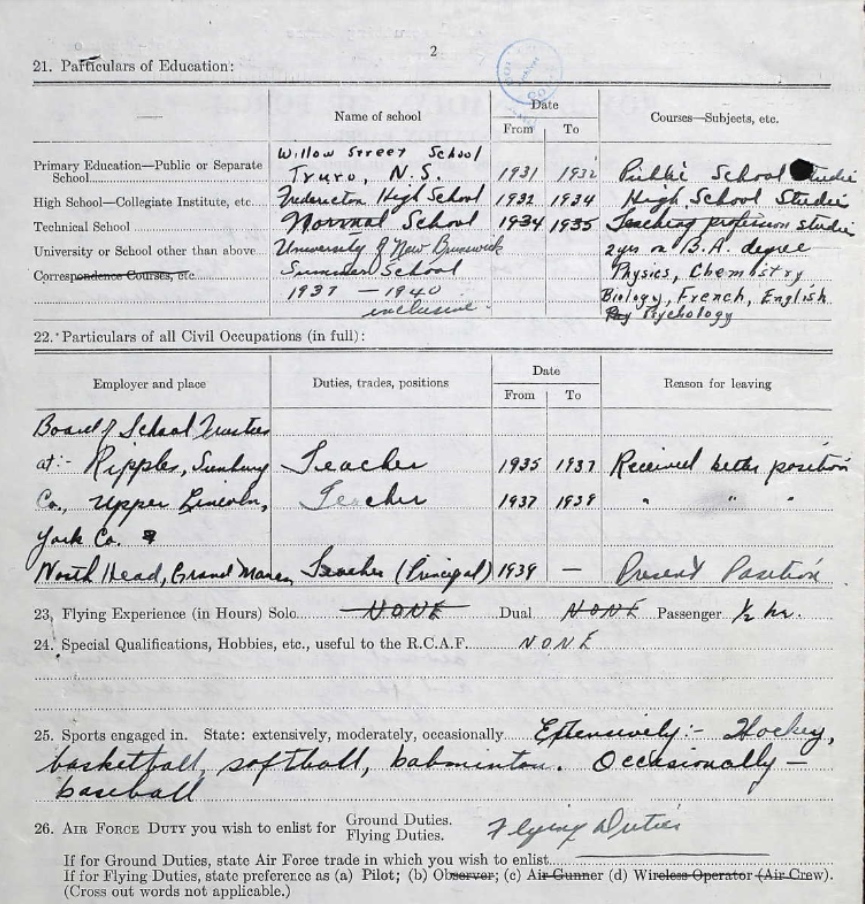 2
21. Particulars of Education:
Name of school
Date
From To
Courses—Subjects, etc.
Willow Street School
Primary Education—Public or Separate School Truro, N.S. 1931 1932 Public School Studie
High School—Collegiate Institute, etc. Fredericton High School 1932 1934 High School Studie
Technical School Normal School 1934 1935 Teaching profession studie
University or School other than above University of New Brunswick 2 yrs on B.A. degree
Correspondence Courses, etc. Summer School Physics, Chemistry
1937 — 1940 Biology, French, English
inclusive. Psychology
22. Particulars of all Civil Occupations (in full):
Employer and place
Duties, trades, positions
Date
From To
Reason for leaving
Board of School Trustees
at:- Ripples, Sunbury Teacher 1935 1937 Received better position
Co., Upper Lincoln, Teacher 1937 1939 " " "
York Co.
North Head, Grand Manan, Teacher (Principal) 1939 — Present Position
23. Flying Experience (in Hours) Solo NONE Dual NONE Passenger 1/2 hr.
24. Special Qualifications, Hobbies, etc., useful to the R.C.A.F. NONE
25. Sports engaged in. State: extensively, moderately, occasionally Extensively:- Hockey,
basketball, softball, babminton. Occasionally —
baseball
26. AIR FORCE DUTY you wish to enlist for Ground Duties. Flying Duties. Flying Duties
If for Ground Duties, state Air Force trade in which you wish to enlist
If for Flying Duties, state preference as (a) Pilot; (b) Observer; (c) Air Gunner (d) Wireless Operator (Air Crew).
(Cross out words not applicable.)